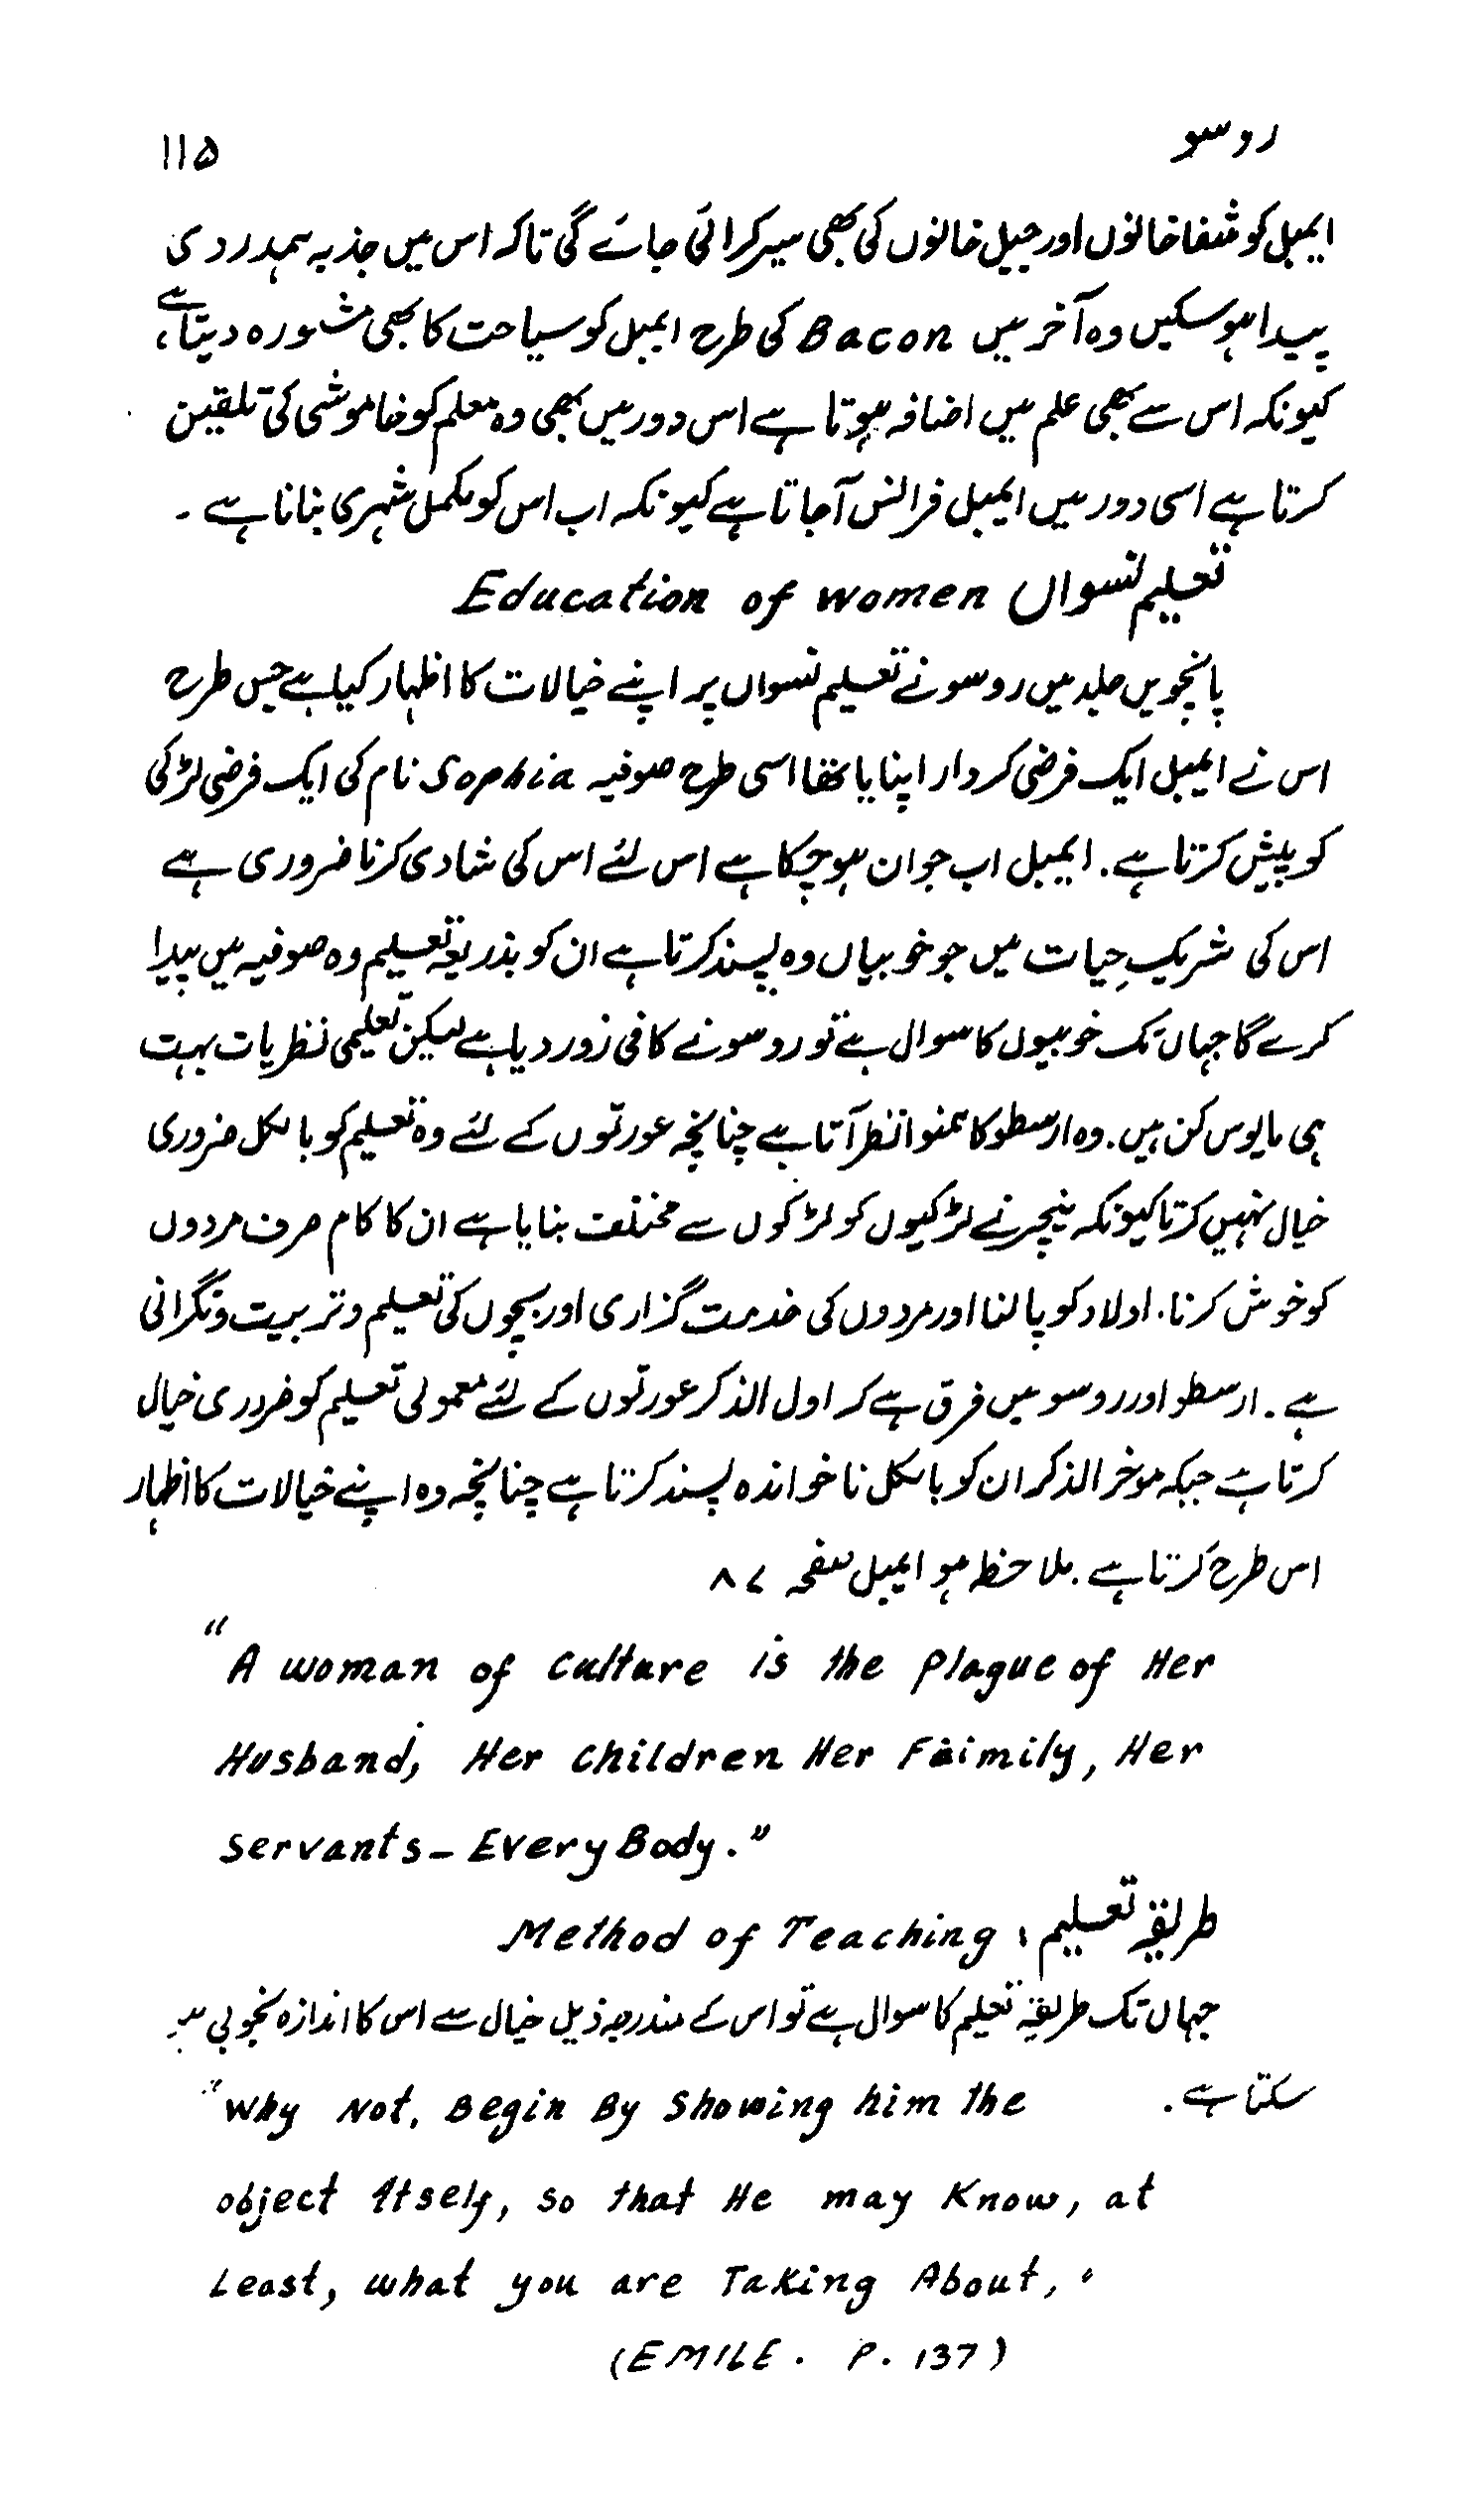 روسو ۱۱۵
ایمیل کو شفا خانوں اور جیل خانوں کی بھی سیر کرائی جائے گی تاکہ اس میں جذبہ ہمدردی
پیدا ہو سکیں وہ آخر میں Bacon کی طرح ایمیل کو سیاحت کا بھی مشورہ دیتا ہے،
کیونکہ اس سے بھی علم میں اضافہ ہوتا ہے اس دور میں بھی وہ معلم کو خاموشی کی تلقین
کرتا ہے اسی دور میں ایمیل فرانس آجاتا ہے کیونکہ اب اس کو مکمل شہری بنانا ہے ۔
تعلیم نسواں Education of women
پانچویں جلد میں روسو نے تعلیم نسواں پر اپنے خیالات کا اظہار کیا ہے جس طرح
اس نے ایمیل ایک فرضی کردار اپنایا تھا اسی طرح صوفیہ Sophia نام کی ایک فرضی لڑکی
کو پیش کرتا ہے۔ ایمیل اب جوان ہو چکا ہے اس لئے اس کی شادی کرنا ضروری ہے
اس کی شریکِ حیات میں جو خوبیاں وہ پسند کرتا ہے ان کو بذریعہ تعلیم وہ صوفیہ میں پیدا
کرے گا جہاں تک خوبیوں کا سوال ہے تو روسو نے کافی زور دیا ہے لیکن تعلیمی نظریات بہت
ہی مایوس کن ہیں۔ وہ ارسطو کا ہمنوا نظر آتا ہے چنانچہ عورتوں کے لئے وہ تعلیم کو بالکل ضروری
خیال نہیں کرتا کیونکہ نیچر نے لڑکیوں کو لڑکوں سے مختلف بنایا ہے ان کا کام صرف مردوں
کو خوش کرنا، اولاد کو پالنا اور مردوں کی خدمت گزاری اور بچوں کی تعلیم و تربیت و نگرانی
ہے۔ ارسطو اور روسو میں فرق ہے کہ اول الذکر عورتوں کے لئے معمولی تعلیم کو ضروری خیال
کرتا ہے جبکہ موخر الذکر ان کو بالکل ناخواندہ پسند کرتا ہے چنانچہ وہ اپنے خیالات کا اظہار
اس طرح کرتا ہے۔ ملاحظہ ہو ایمیل صفحہ ۸۷
"A woman of culture is the plague of Her
Husband, Her children Her Faimily, Her
servants- Every Body."
طریقہ تعلیم : Method of Teaching
جہاں تک طریقہ تعلیم کا سوال ہے تو اس کے مندرجہ ذیل خیال سے اس کا اندازہ بخوبی
سکتا ہے۔ "Why Not, Begin By Showing him the
object Itself, so that He may Know, at
Least, what you are Taking About,"
(EMILE. P. 137)